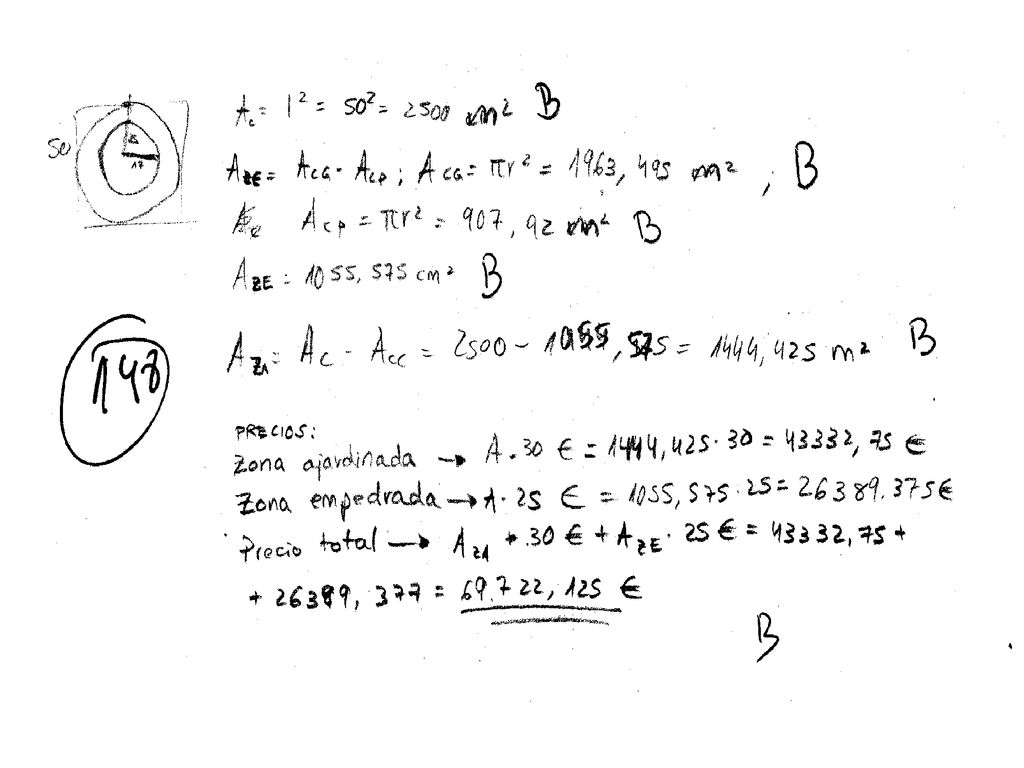 50
8
17
A_c = l² = 50² = 2500 m² B
A_ZE = A_CG - A_CP ; A_CG = πr² = 1963,495 m² , B
A_CP = πr² = 907,92 m² B
A_ZE = 1055,575 cm² B
A_ZA = A_C - A_CC = 2500 - 1055,575 = 1444,425 m² B
PRECIOS:
Zona ajardinada → A.30 € = 1444,425.30 = 43332,75 €
Zona empedrada → A.25 € = 1055,575.25 = 26389.375€
Precio total → A_ZA .30 € + A_ZE . 25 € = 43332,75 +
+ 26389,377 = 69.722,125 €
B